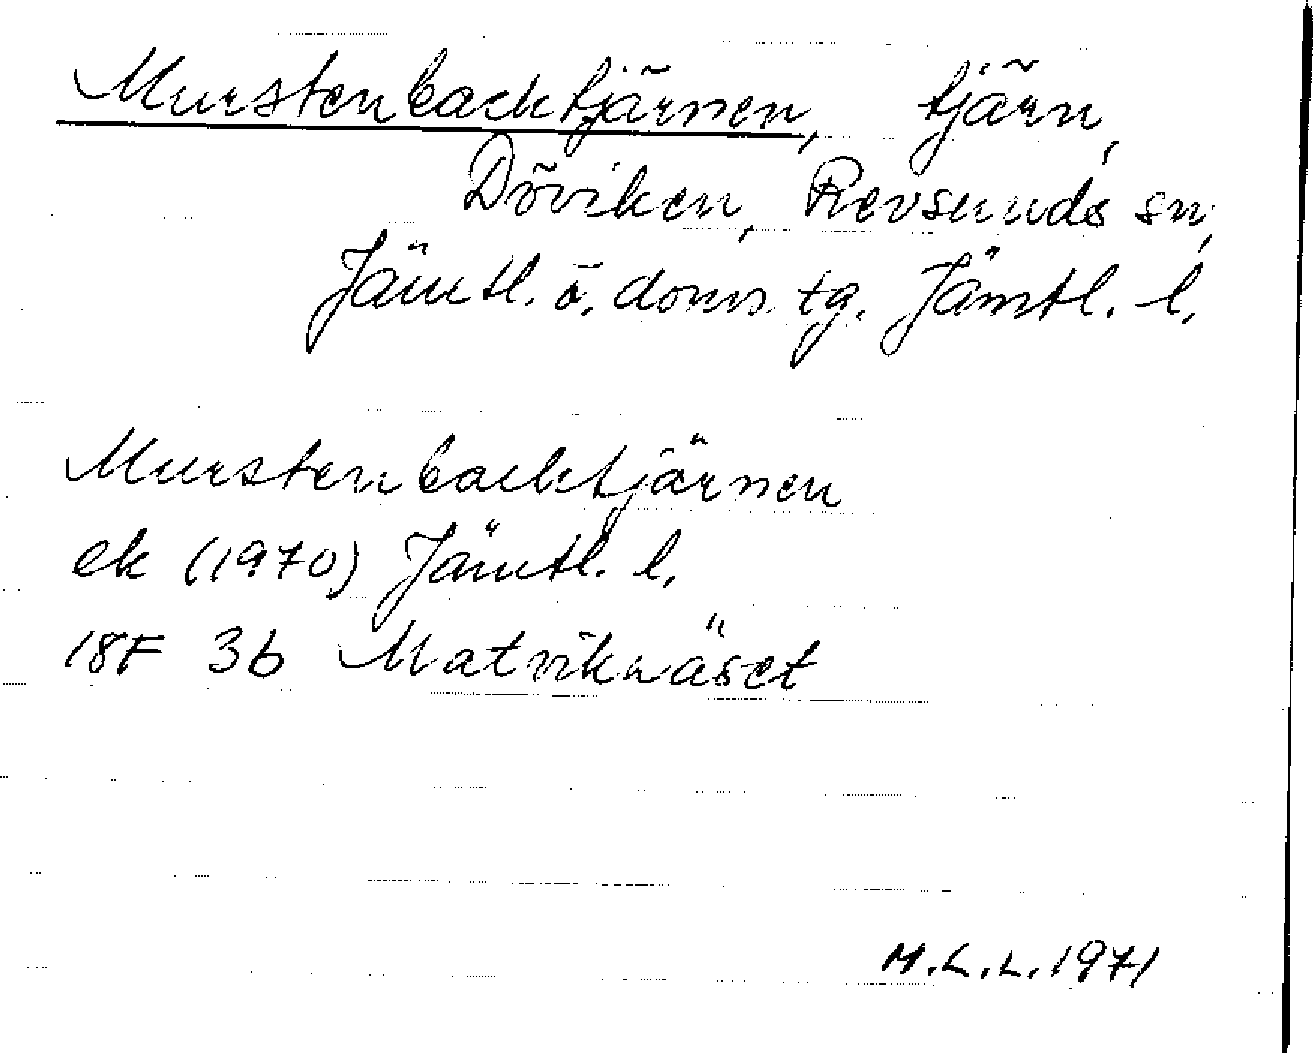 Murstenbacktjärnen, tjärn,
Döviken, Revsunds sn,
Jämtl. ö. doms. tg. Jämtl. l.
Murstenbacktjärnen
ek (1970) Jämtl. l.
18F 3b Matviknäset
M.L.L. 1971